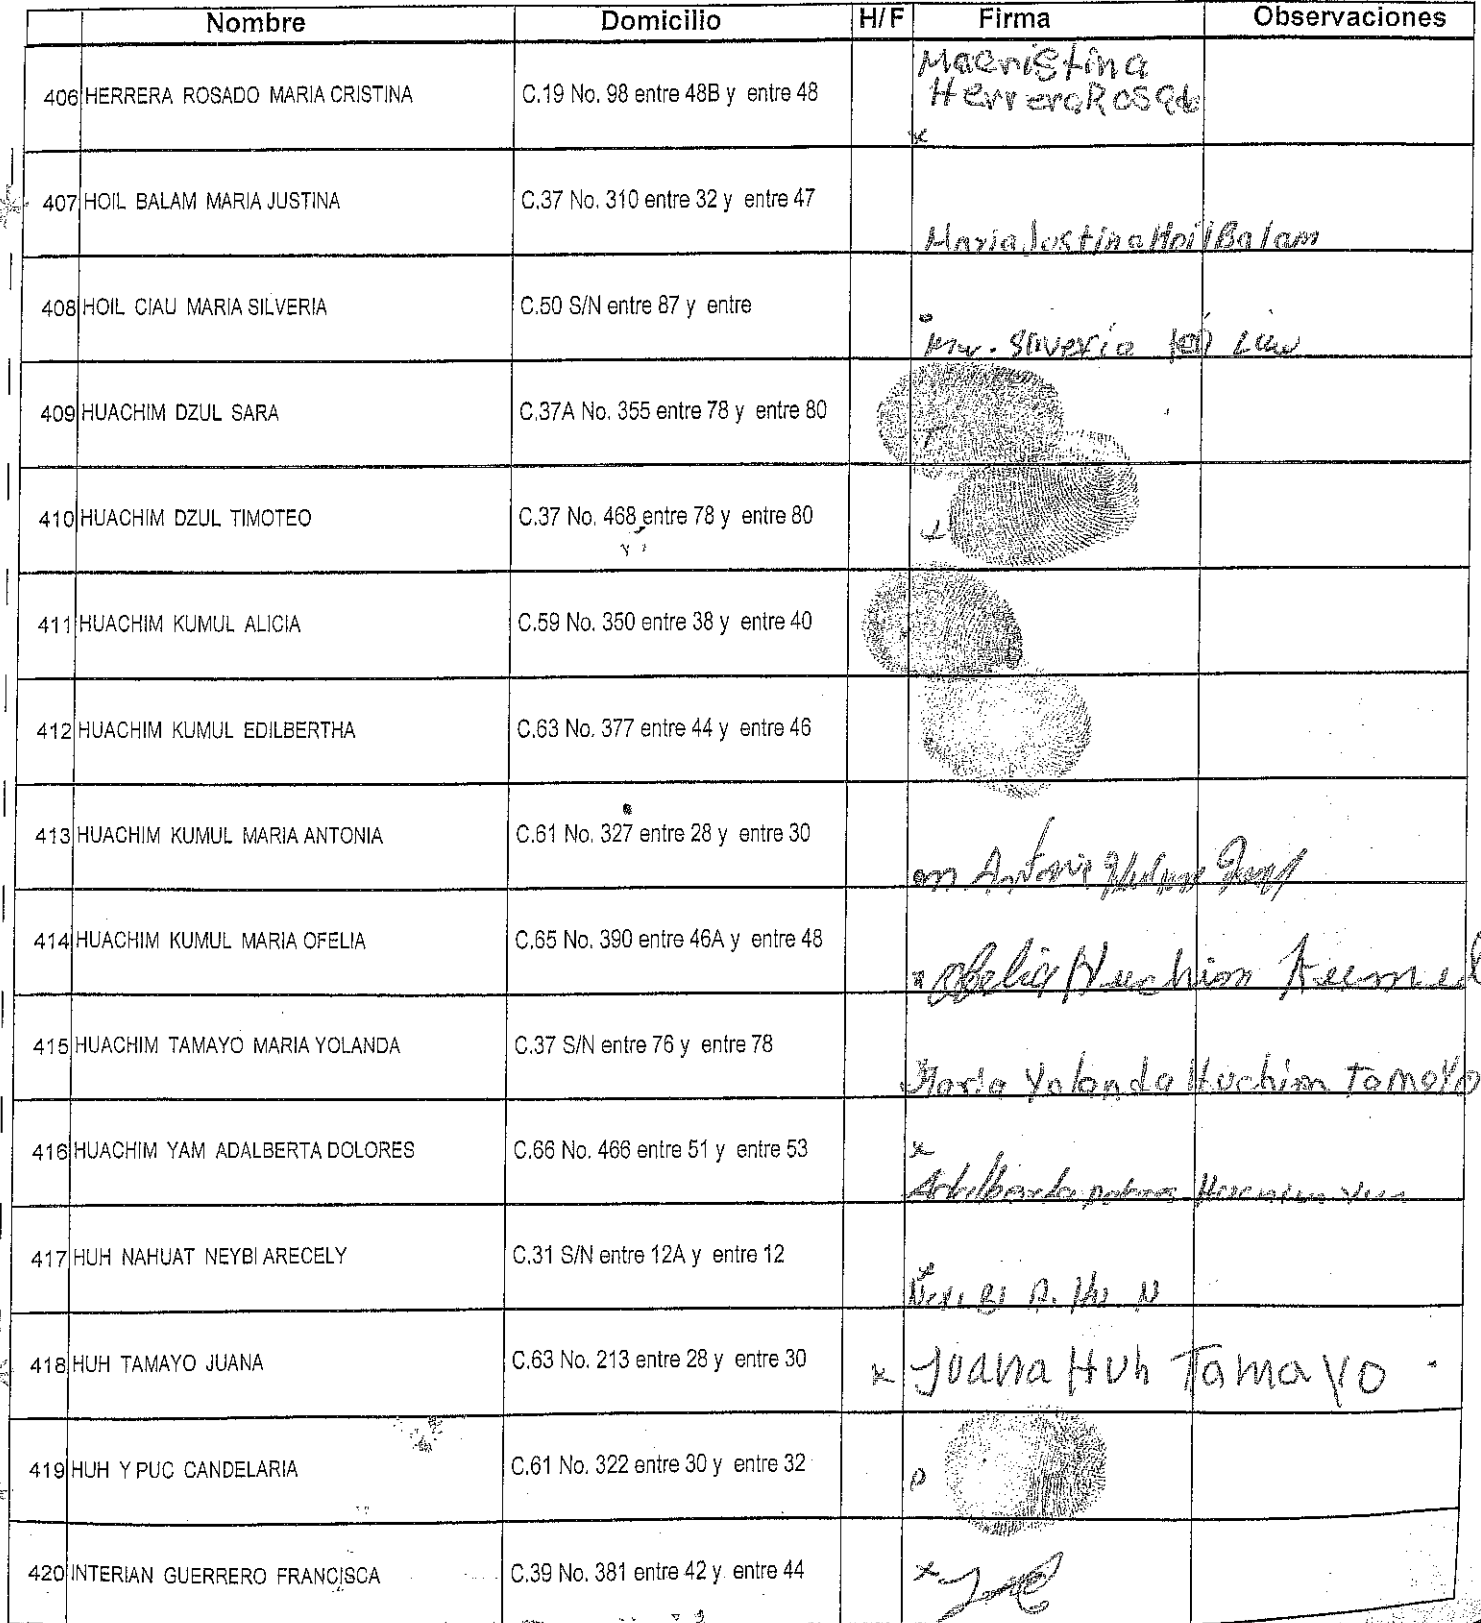 Nombre Domicilio H/F Firma Observaciones
406 HERRERA ROSADO MARIA CRISTINA C.19 No. 98 entre 48B y entre 48 Macristina
Herrera Rosado
x
407 HOIL BALAM MARIA JUSTINA C.37 No. 310 entre 32 y entre 47
Maria Justina Hoil Balam
408 HOIL CIAU MARIA SILVERIA C.50 S/N entre 87 y entre
Silveria
409 HUACHIM DZUL SARA C.37A No. 355 entre 78 y entre 80
410 HUACHIM DZUL TIMOTEO C.37 No. 468 entre 78 y entre 80
411 HUACHIM KUMUL ALICIA C.59 No. 350 entre 38 y entre 40
412 HUACHIM KUMUL EDILBERTHA C.63 No. 377 entre 44 y entre 46
413 HUACHIM KUMUL MARIA ANTONIA C.61 No. 327 entre 28 y entre 30
m Antonia
414 HUACHIM KUMUL MARIA OFELIA C.65 No. 390 entre 46A y entre 48
x Ofelia Huchim Kumul
415 HUACHIM TAMAYO MARIA YOLANDA C.37 S/N entre 76 y entre 78
Maria Yolanda Huchim Tamayo
416 HUACHIM YAM ADALBERTA DOLORES C.66 No. 466 entre 51 y entre 53 x
Adalberta
417 HUH NAHUAT NEYBI ARECELY C.31 S/N entre 12A y entre 12 x
418 HUH TAMAYO JUANA C.63 No. 213 entre 28 y entre 30 x Juana Huh Tamayo
419 HUH Y PUC CANDELARIA C.61 No. 322 entre 30 y entre 32
420 INTERIAN GUERRERO FRANCISCA C.39 No. 381 entre 42 y entre 44 x